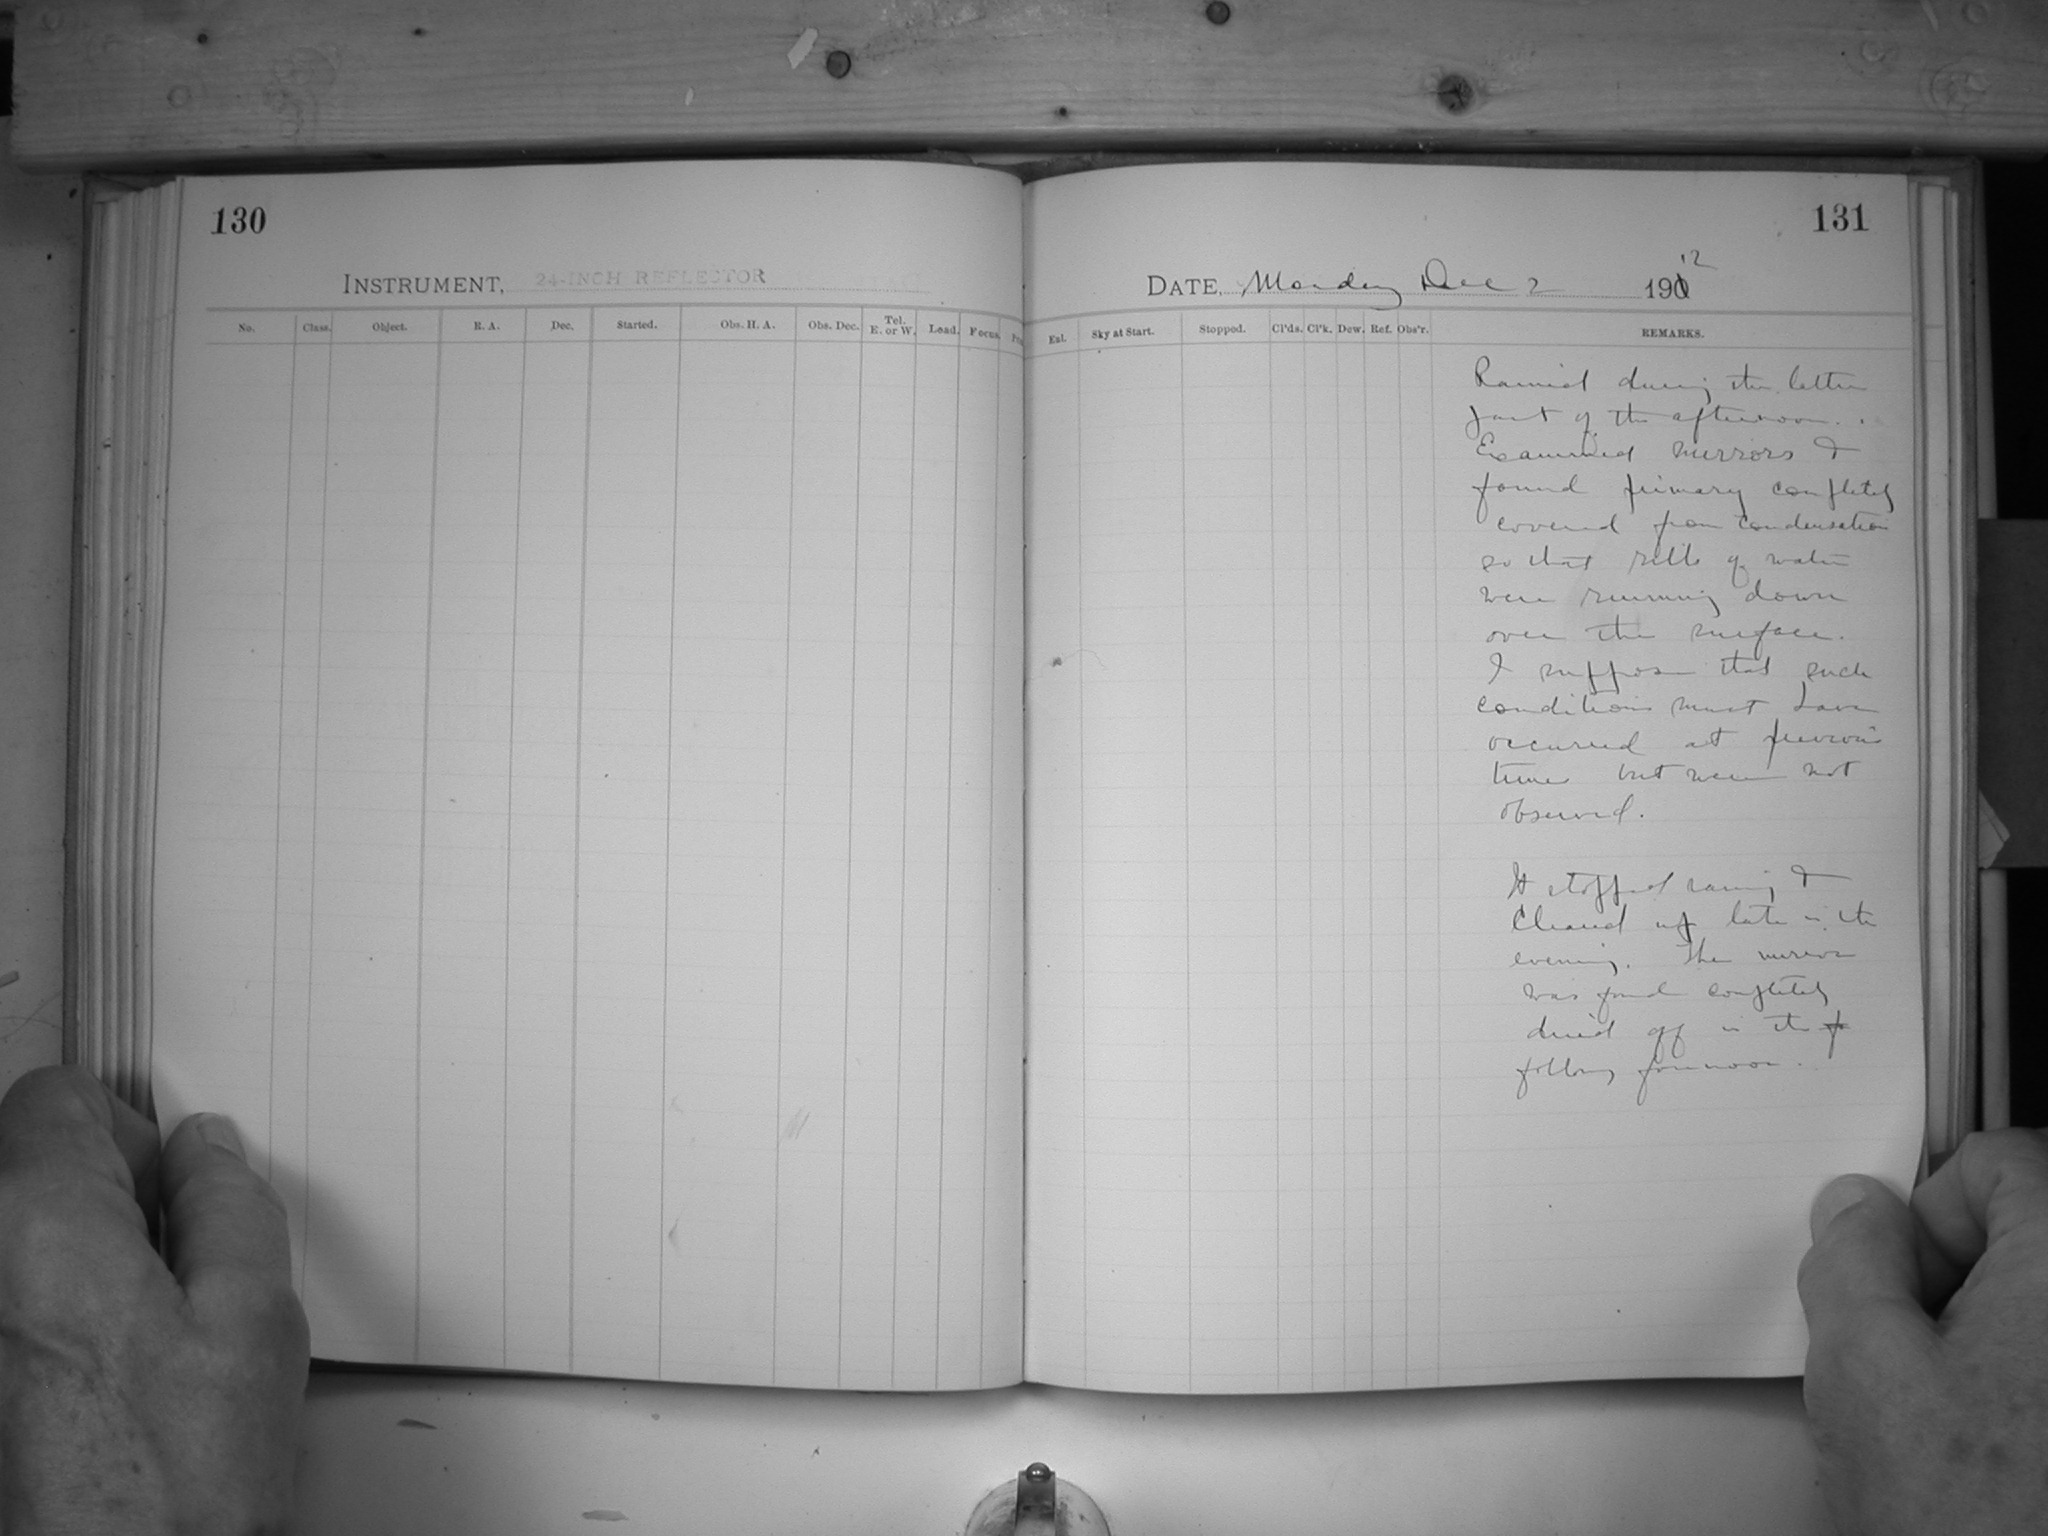 130
INSTRUMENT, 24-INCH REFLECTOR
No. Class. Object. R. A. Dec. Started. Obs. H. A. Obs. Dec. Tel. E. or W. Load. Focus.
131
DATE, Monday Dec 2 1912
Eal. Sky at Start. Stopped. Cl'ds. Cl'k. Dew. Ref. Obs'r. REMARKS.
Rained during the latter
part of the afternoon.
Examined mirrors &
found primary completely
covered from condensation
so that rills of water
were running down
over the surface.
I suppose that such
conditions must have
occurred at previous
times but were not
observed.
It stopped raining &
cleared up late in the
evening. The mirror
was found completely
dried off in the
following forenoon.